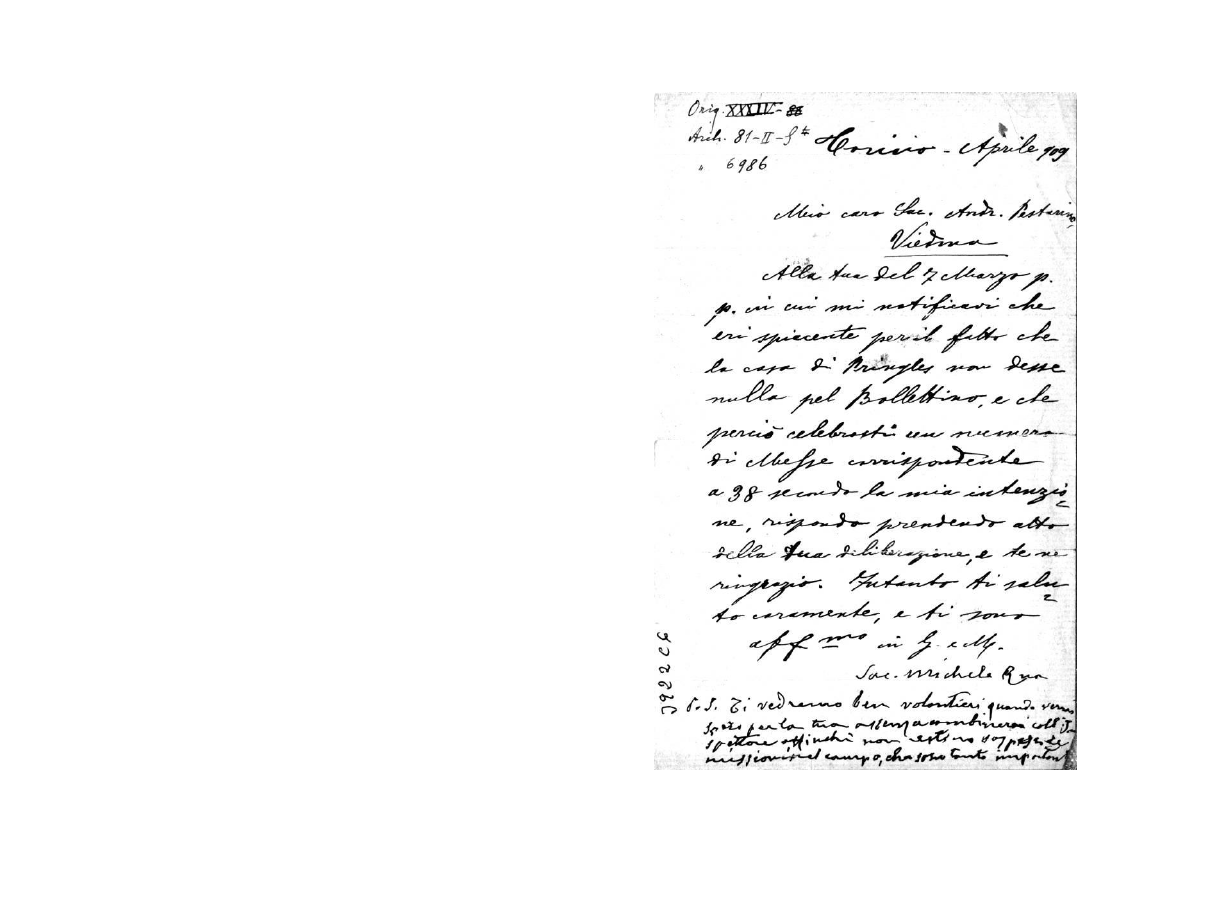 Orig. XXXIV - 88
Arch. 81-II-S
" 6986
Torino - Aprile 909
Mio caro Sac. Andr. Pestarino,
Viedma
Alla tua del 7 Marzo p.
p. in cui mi notificavi che
eri spiacente per il fatto che
la casa di Pringles non desse
nulla pel Bollettino, e che
perciò celebrasti un numero
di Messe corrispondente
a 38 secondo la mia intenzio
ne, rispondo prendendo atto
della tua diliberazione, e te ne
ringrazio. Intanto ti salu
to caramente, e ti sono
aff.mo in G. e M.
Sac. Michele Rua
P.S. Ti vedremo ben volontieri quando verrai
per la tua assenza combinerai coll'I
spettore affinchè non restino sospese le
missioni nel campo, che sono tanto important
3922C9